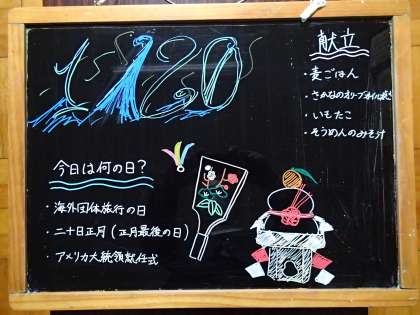 1/20
献立
・麦ごはん
・さかなのオリーブオイル焼き
・いもたこ
・そうめんのみそ汁
今日は何の日?
・海外団体旅行の日
・二十日正月(正月最後の日)
・アメリカ大統領就任式